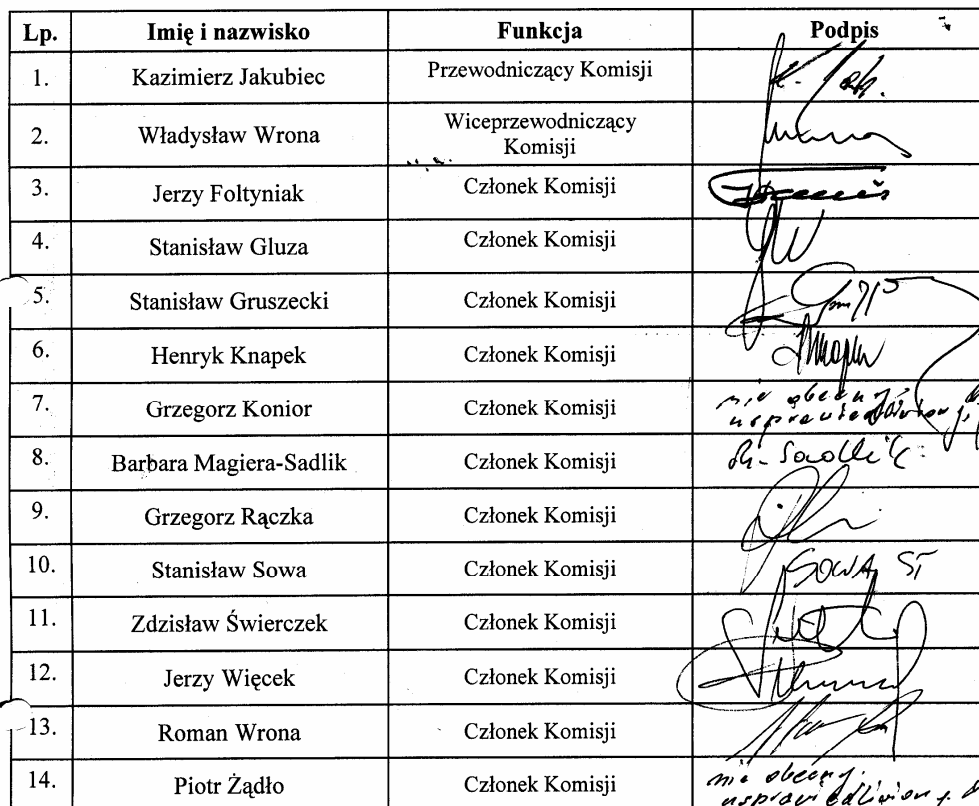 Lp. Imię i nazwisko Funkcja Podpis
1. Kazimierz Jakubiec Przewodniczący Komisji K. Jak.
2. Władysław Wrona Wiceprzewodniczący
Komisji
3. Jerzy Foltyniak Członek Komisji
4. Stanisław Gluza Członek Komisji
5. Stanisław Gruszecki Członek Komisji
6. Henryk Knapek Członek Komisji
7. Grzegorz Konior Członek Komisji nie obecny,
usprawiedliwiony,
8. Barbara Magiera-Sadlik Członek Komisji
9. Grzegorz Rączka Członek Komisji
10. Stanisław Sowa Członek Komisji SOWA ST
11. Zdzisław Świerczek Członek Komisji
12. Jerzy Więcek Członek Komisji
13. Roman Wrona Członek Komisji
14. Piotr Żądło Członek Komisji nie obecny.
usprawiedliwiony.